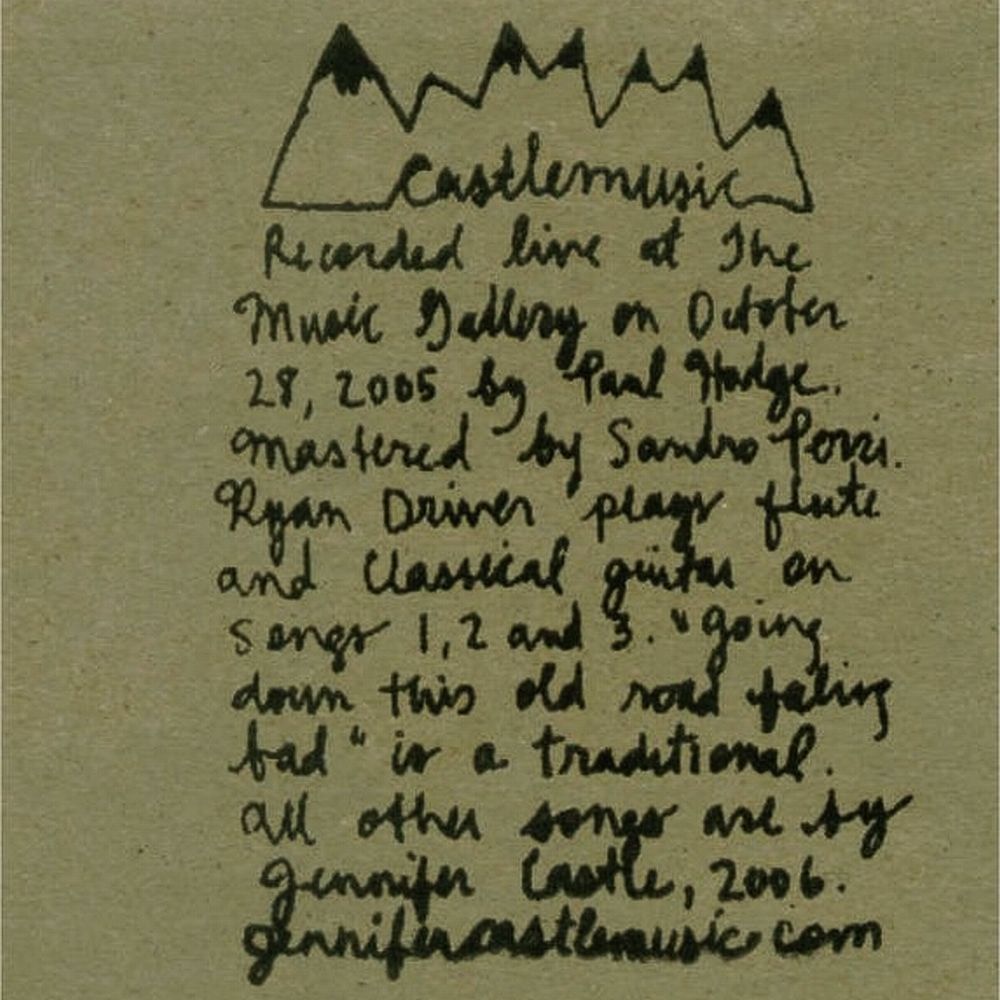 Castlemusic
Recorded live at The
Music Gallery on October
28, 2005 by Paul Hodge.
Mastered by Sandro Perri.
Ryan Driver plays flute
and Classical guitar on
songs 1, 2 and 3. "going
down this old road feeling
bad" is a traditional.
All other songs are by
Jennifer Castle, 2006.
jennifercastlemusic.com